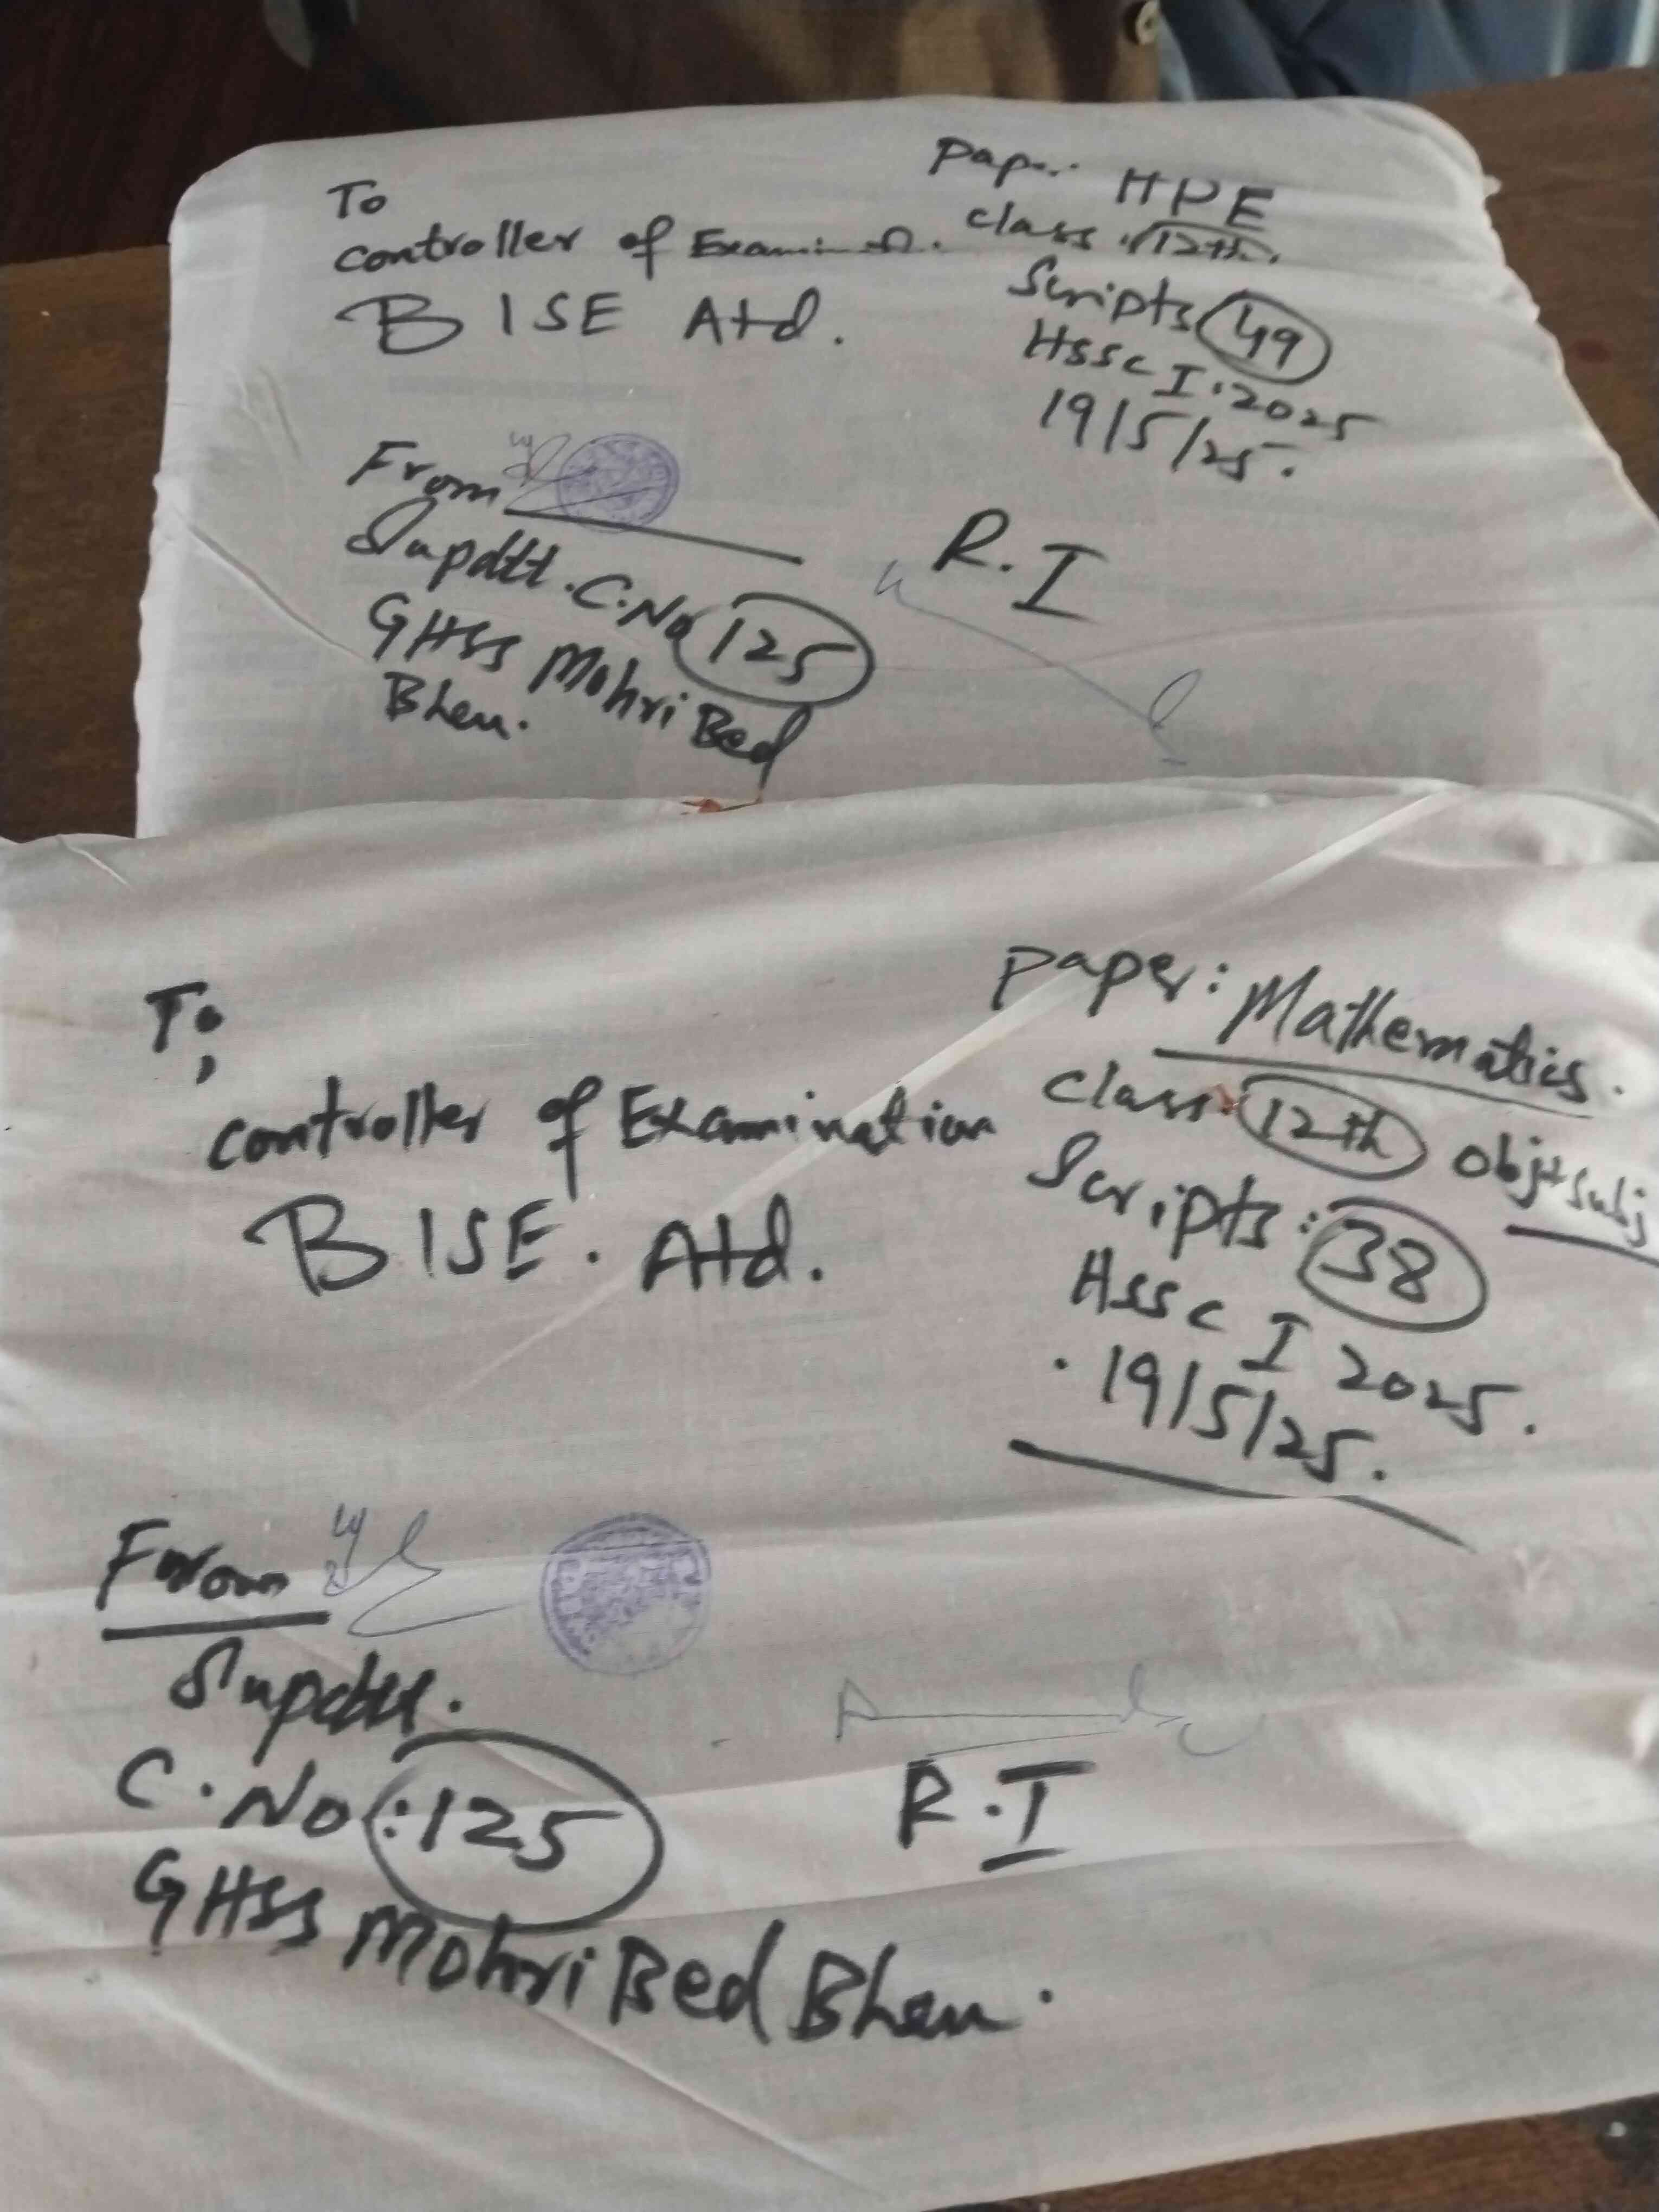 To
controller of Examination.
BISE Atd.
Paper HPE
class 12th.
Scripts 49
Hssc I. 2025
19/5/25.
From
Supdtt. C.No 125
GHSS Mohri Bed
Bhen.
R.I
To,
controller of Examination
BISE. Atd.
paper: Mathematics.
class 12th obj+subj
Scripts: 38
Hssc I 2025.
19/5/25.
From
Supdtt.
C. No: 125
GHSS Mohri Bed Bhen.
R.I